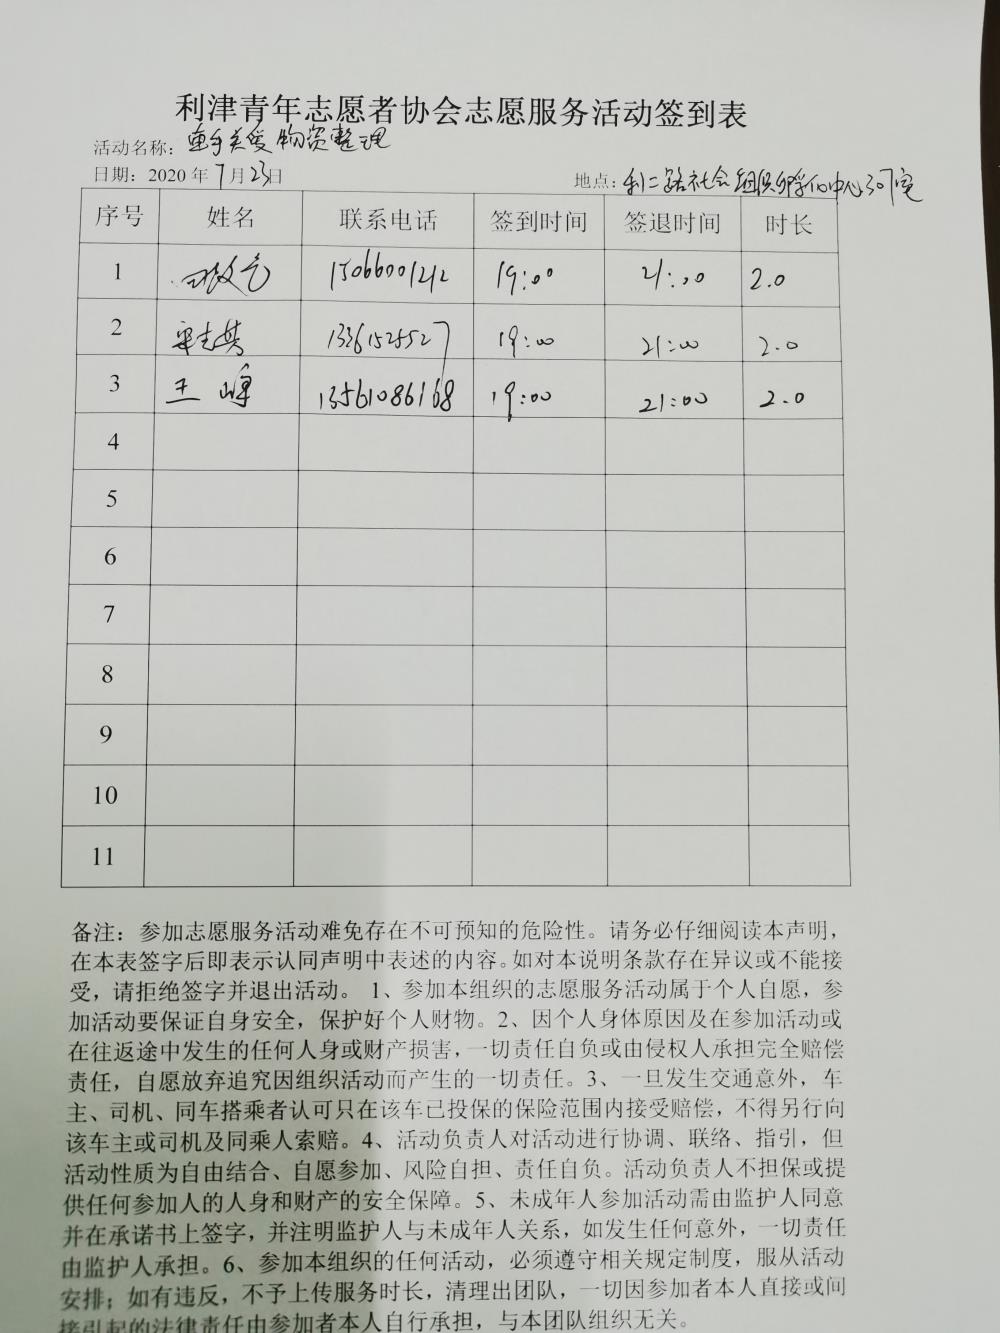 利津青年志愿者协会志愿服务活动签到表
活动名称：牵手关爱物资整理
日期：2020年7月23日 地点：利二路社会组织孵化中心307室
序号 姓名 联系电话 签到时间 签退时间 时长
1 15066001212 19:00 21:00 2.0
2 19:00 21:00 2.0
3 王峰 13561086168 19:00 21:00 2.0
4
5
6
7
8
9
10
11
备注：参加志愿服务活动难免存在不可预知的危险性。请务必仔细阅读本声明，
在本表签字后即表示认同声明中表述的内容。如对本说明条款存在异议或不能接
受，请拒绝签字并退出活动。 1、参加本组织的志愿服务活动属于个人自愿，参
加活动要保证自身安全，保护好个人财物。2、因个人身体原因及在参加活动或
在往返途中发生的任何人身或财产损害，一切责任自负或由侵权人承担完全赔偿
责任，自愿放弃追究因组织活动而产生的一切责任。3、一旦发生交通意外，车
主、司机、同车搭乘者认可只在该车已投保的保险范围内接受赔偿，不得另行向
该车主或司机及同乘人索赔。4、活动负责人对活动进行协调、联络、指引，但
活动性质为自由结合、自愿参加、风险自担、责任自负。活动负责人不担保或提
供任何参加人的人身和财产的安全保障。5、未成年人参加活动需由监护人同意
并在承诺书上签字，并注明监护人与未成年人关系，如发生任何意外，一切责任
由监护人承担。6、参加本组织的任何活动，必须遵守相关规定制度，服从活动
安排；如有违反，不予上传服务时长，清理出团队，一切因参加者本人直接或间
接引起的法律责任由参加者本人自行承担，与本团队组织无关。